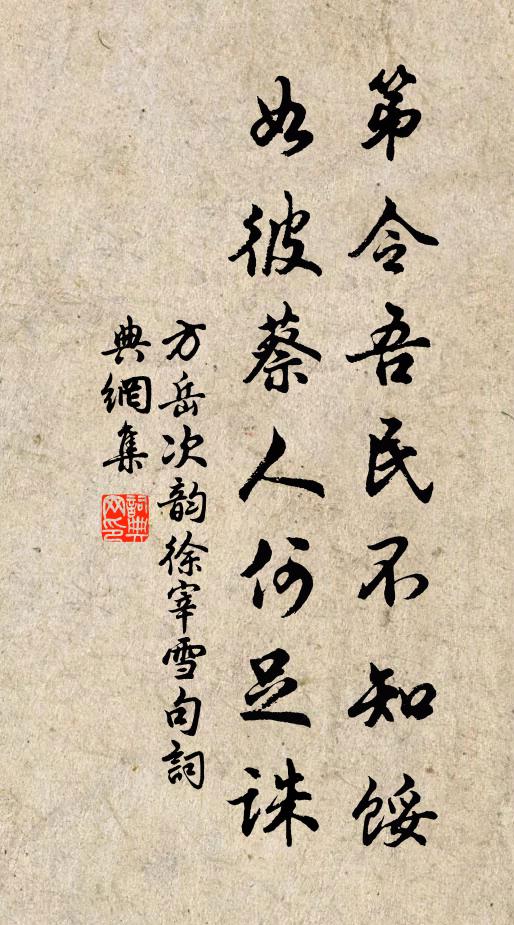 第令吾民不知餒
如彼蔡人何足誅
方岳次韵徐宰雪句詞
典網集
詞典網印